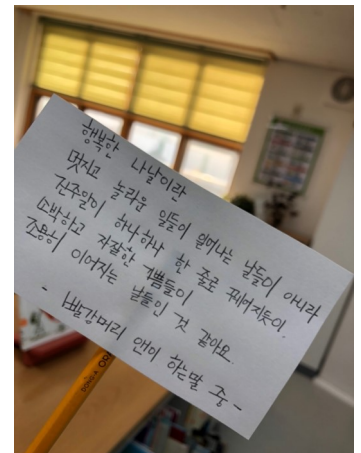 행복한 나날이란
멋지고 놀라운 일들이 일어나는 날들이 아니라
진주알이 하나하나 한 줄로 꿰어지듯이.
소박하고 자잘한 기쁨들이
조용히 이어지는 날들인 것 같아요.
- 빨강머리 앤이 하는말 중 -